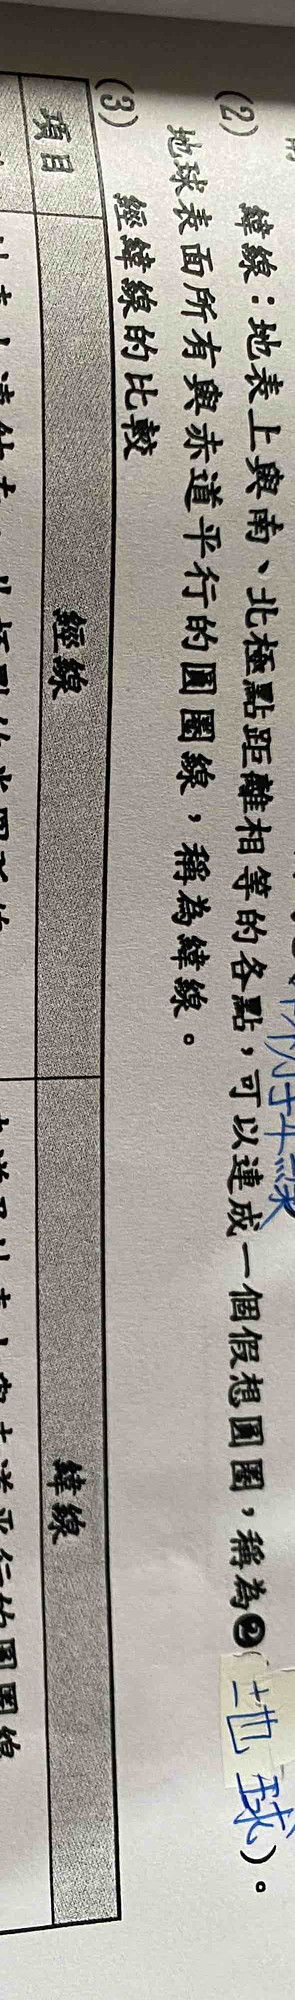 (2) 緯線：地表上與南、北極點距離相等的各點，可以連成一個假想圓圈，稱為❷(地球)。
地球表面所有與赤道平行的圓圈線，稱為緯線。
(3) 經緯線的比較
項目 經線 緯線